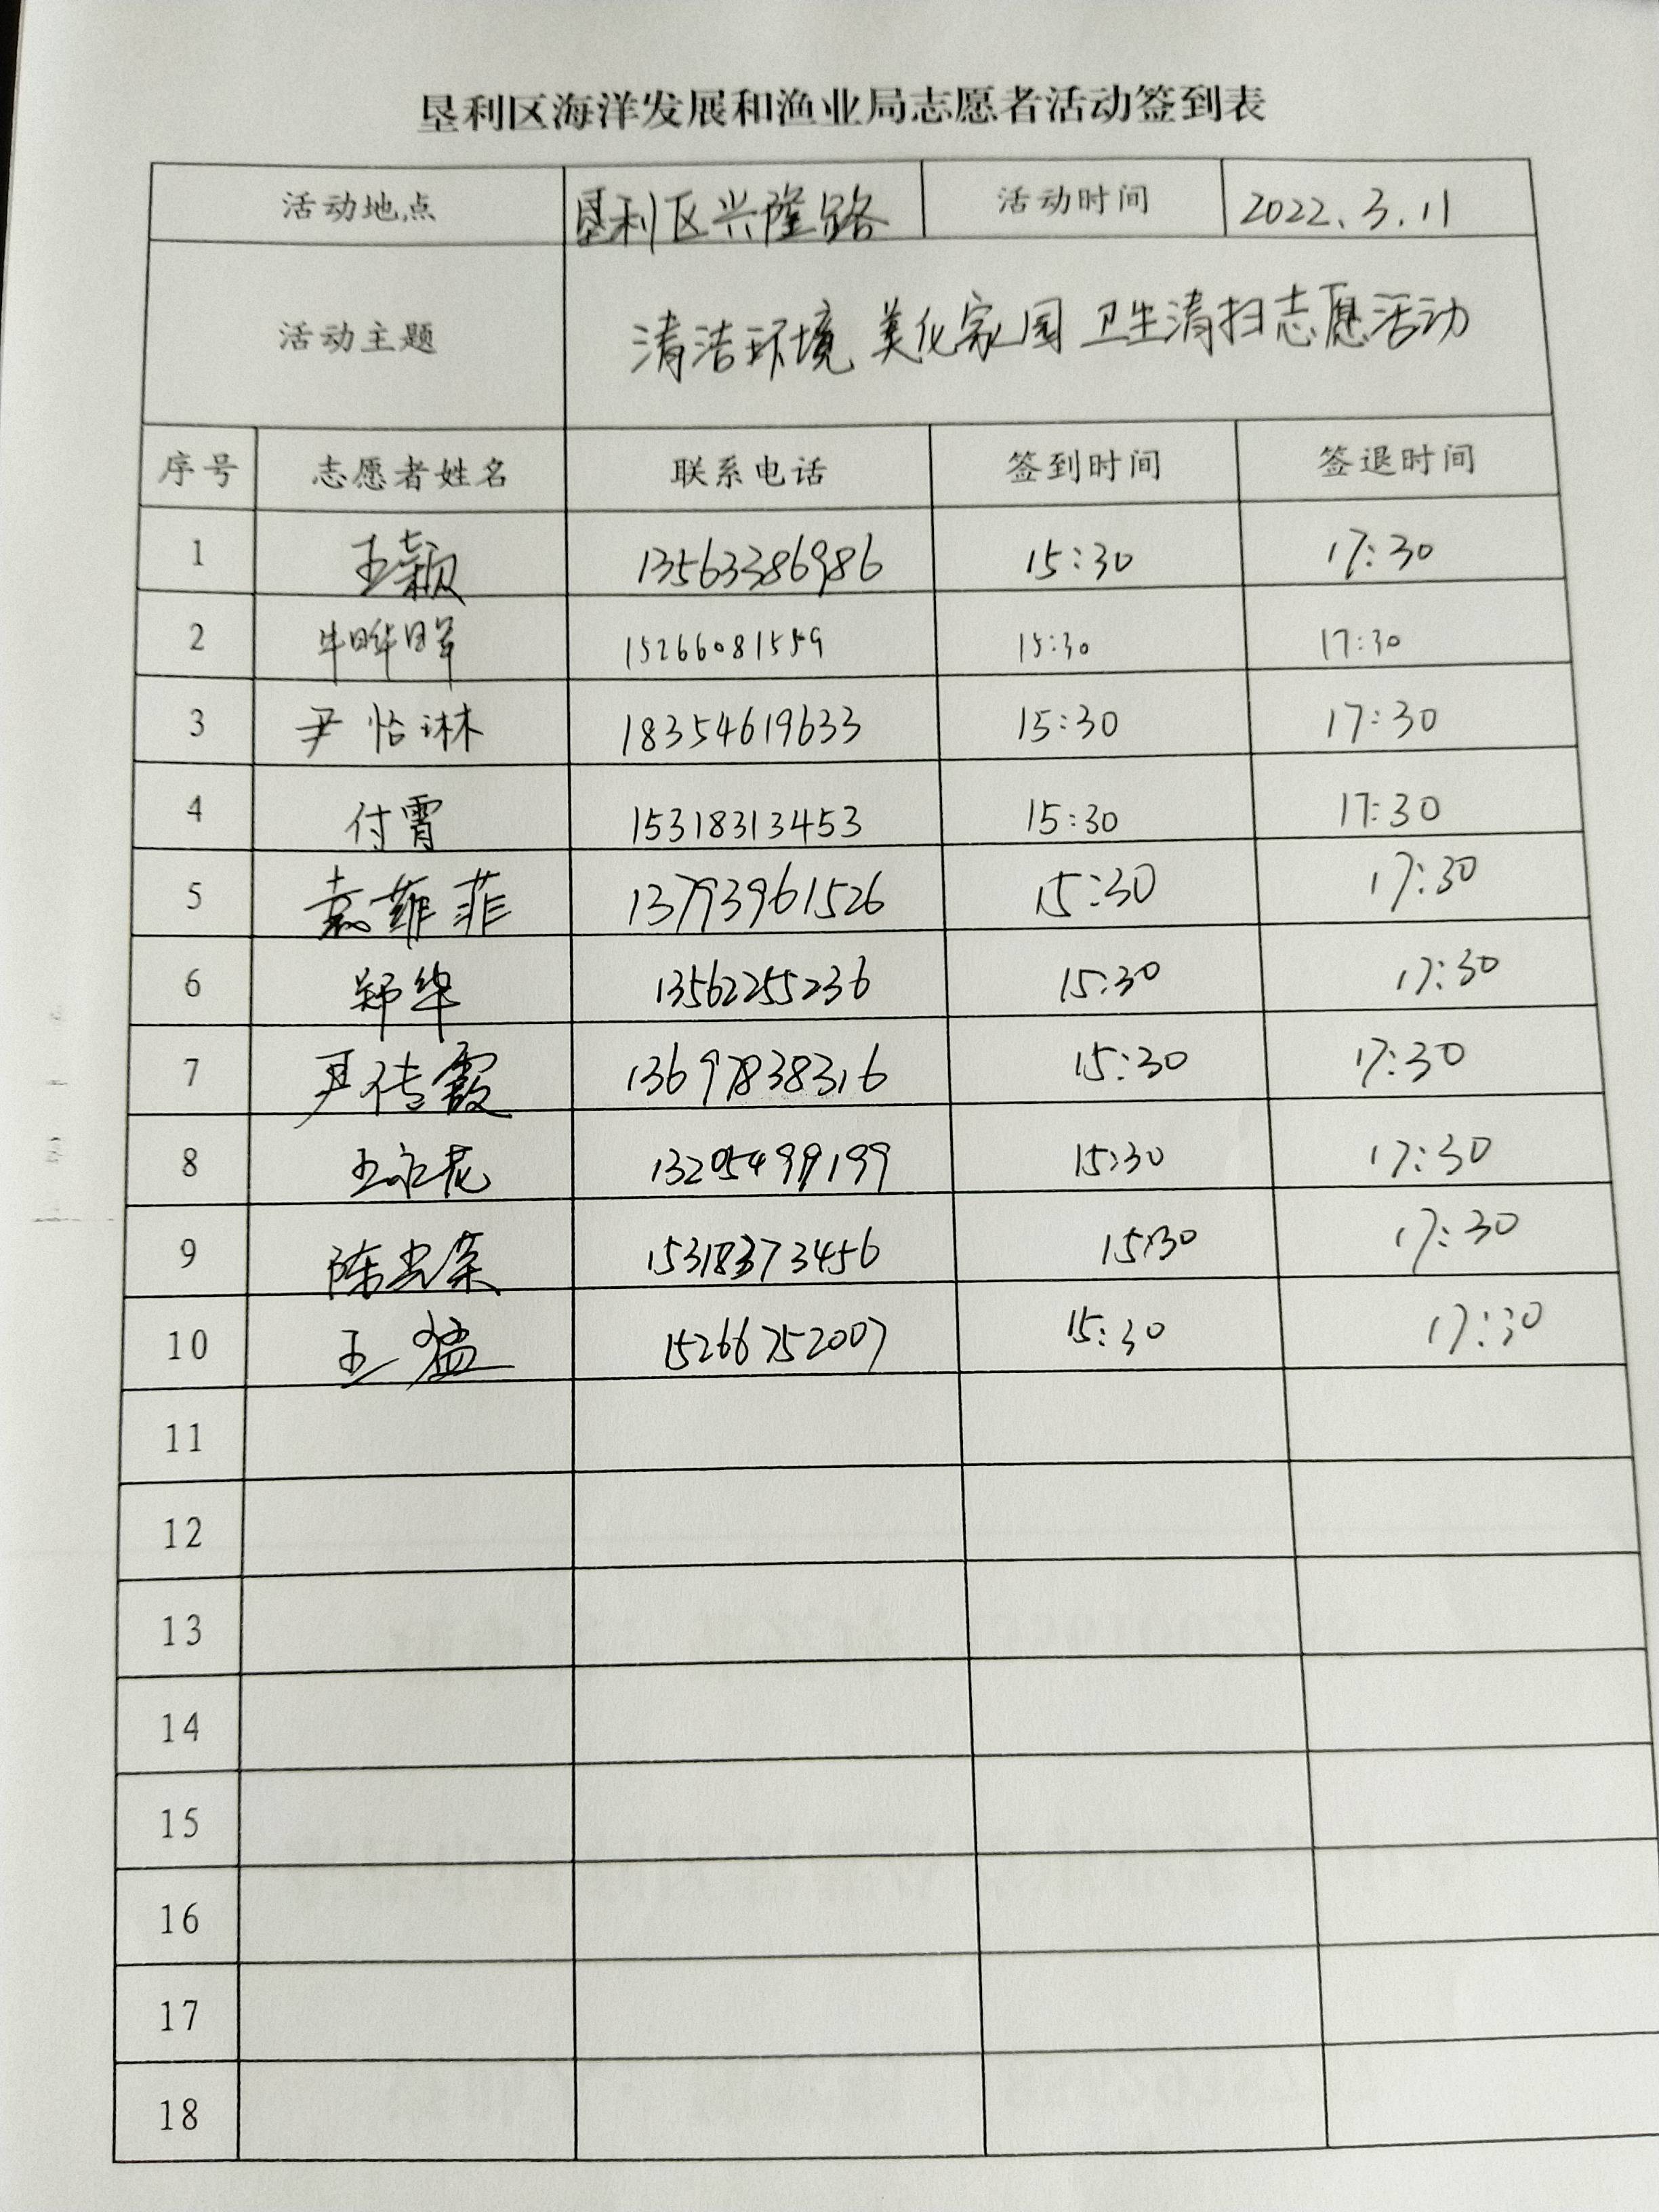 垦利区海洋发展和渔业局志愿者活动签到表
活动地点 垦利区兴隆路 活动时间 2022.3.11
活动主题 清洁环境 美化家园 卫生清扫志愿活动
序号 志愿者姓名 联系电话 签到时间 签退时间
1 王颖 13563386986 15:30 17:30
2 15266081559 15:30 17:30
3 尹怡琳 18354619633 15:30 17:30
4 付霄 15318313453 15:30 17:30
5 袁菲菲 13793961526 15:30 17:30
6 郑华 13562255236 15:30 17:30
7 尹传霞 13697838316 15:30 17:30
8 王永花 13205499199 15:30 17:30
9 陈光荣 15318373456 15:30 17:30
10 王猛 15266752007 15:30 17:30
11
12
13
14
15
16
17
18